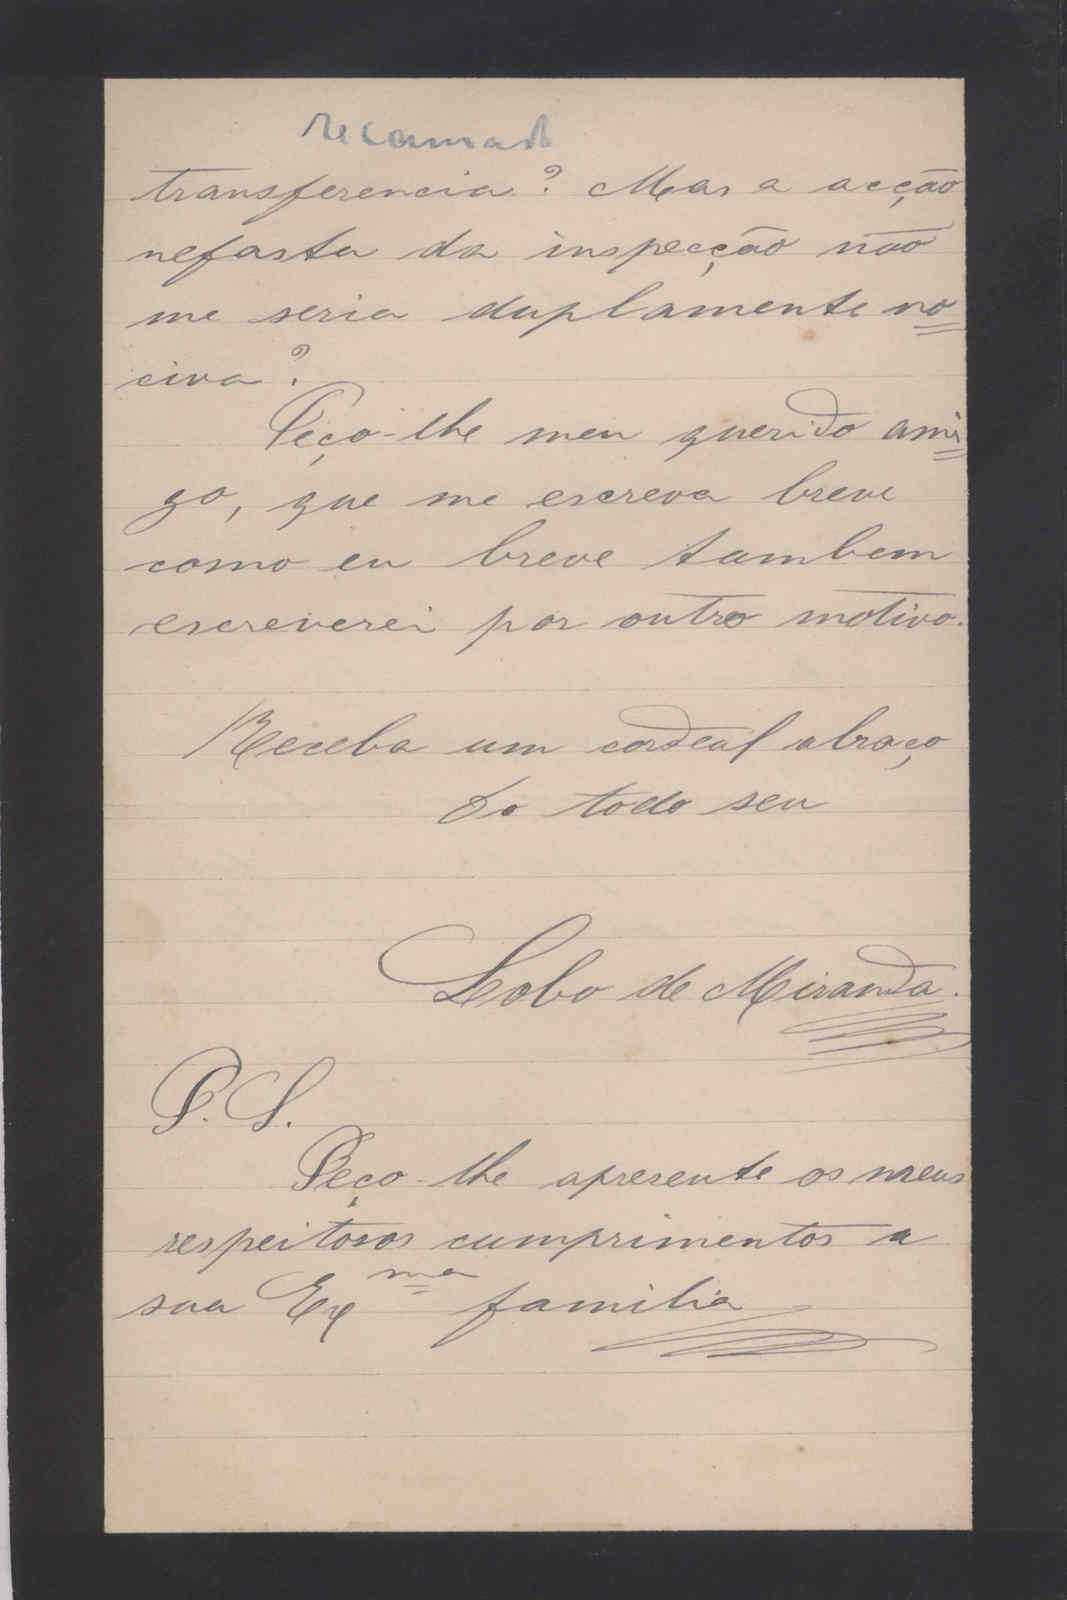 transferencia? Mas a acção
nefasta da inspecção não
me seria duplamente no=
civa?
Peço-lhe meu querido ami=
go, que me escreva breve
como eu breve tambem
escreverei por outro motivo.
Receba um cordeal abraço
do todo seu
Lobo de Miranda.
P.S.
Peço-lhe apresente os meus
respeitosos cumprimentos a
sua Exma familia